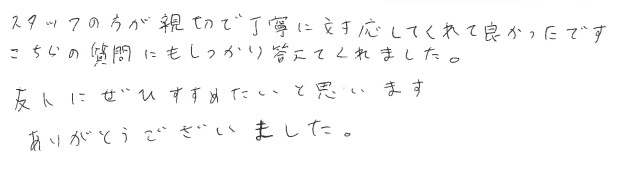 スタッフの方が親切で丁寧に対応してくれて良かったです
こちらの質問にもしっかり答えてくれました。
友人にぜひすすめたいと思います
ありがとうございました。